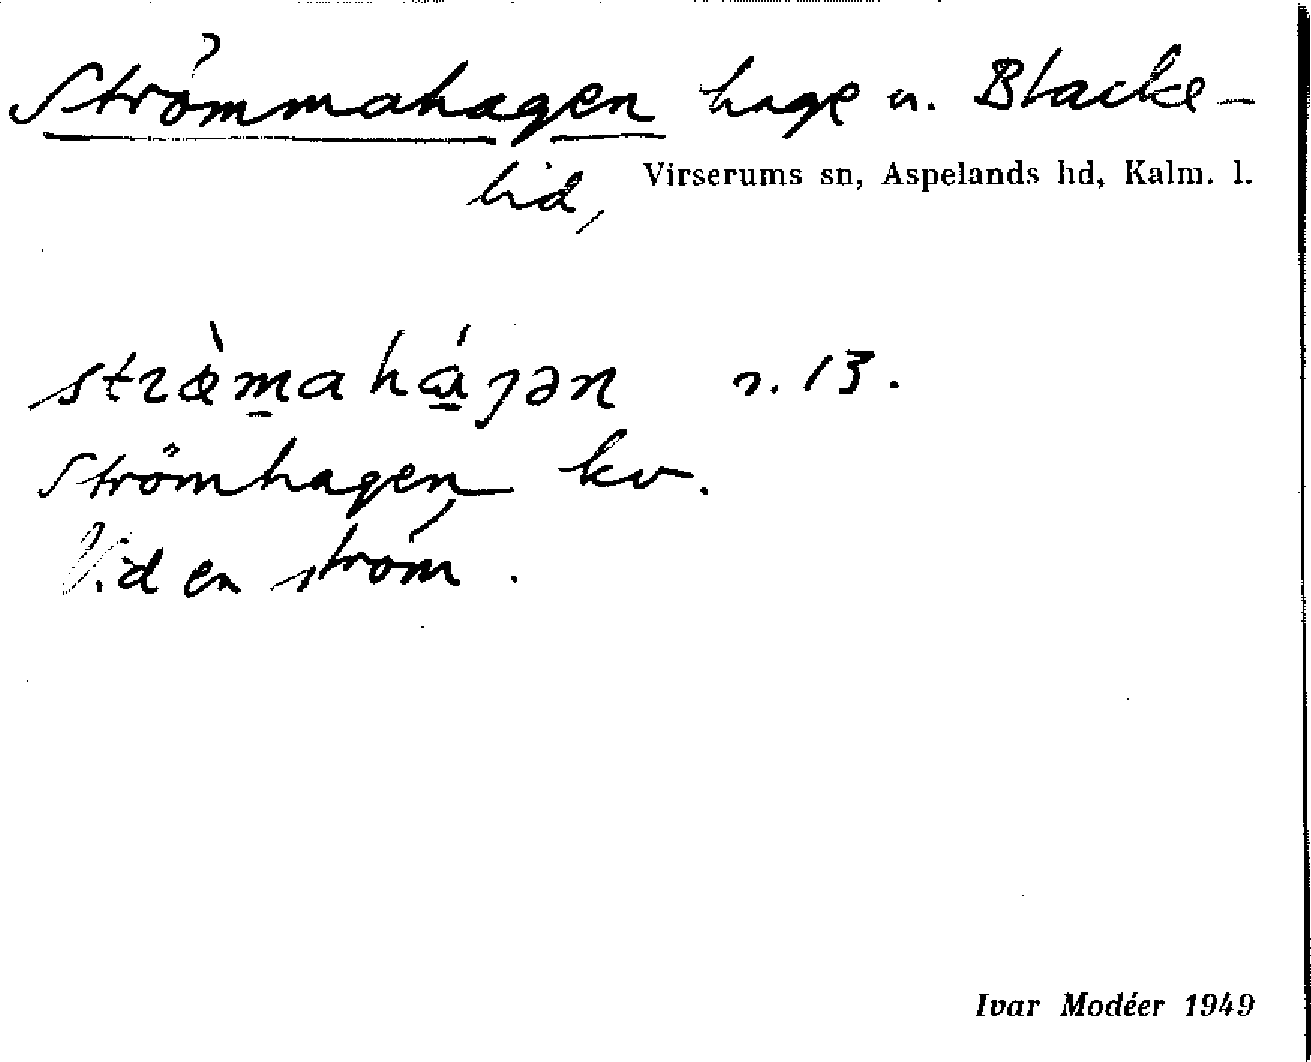 Strömmahagen hage u. Blacke-
lid, Virserums sn, Aspelands hd, Kalm. l.
stræ̀m̲ahá̲ɡən r. 13.
Strömhagen kv.
Vid en ström.
Ivar Modéer 1949